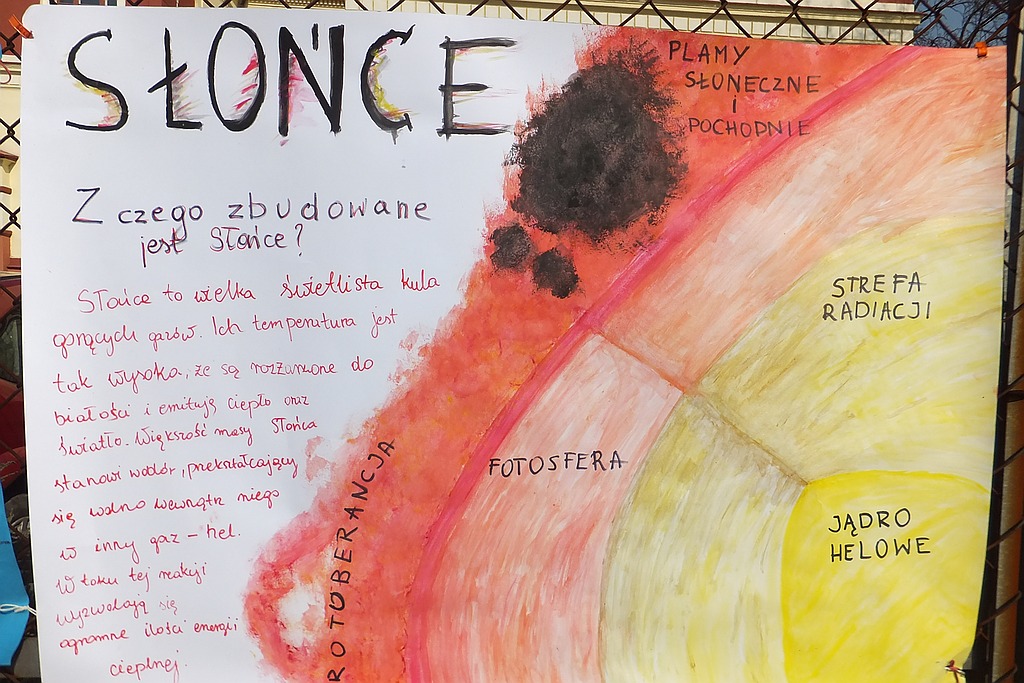 SŁOŃCE
Z czego zbudowane
jest Słońce?
Słońce to wielka świetlista kula
gorących gazów. Ich temperatura jest
tak wysoka, że są rozżarzone do
białości i emitują ciepło oraz
światło. Większość masy Słońca
stanowi wodór, przekształcający
się wolno wewnątrz niego
w inny gaz – hel.
W toku tej reakcji
wyzwalają się
ogromne ilości energii
cieplnej.
PLAMY
SŁONECZNE
i
POCHODNIE
STREFA
RADIACJI
FOTOSFERA
JĄDRO
HELOWE
ROTOBERANCJA